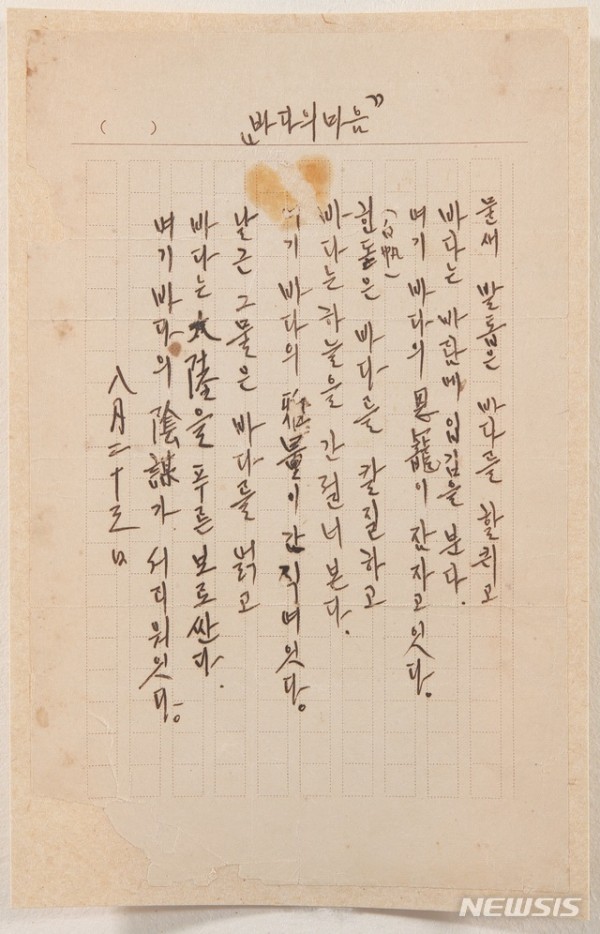 ( )
„바다의마음”
물새 발톱은 바다를 할퀴고
바다는 바람에 입김을 분다.
여기 바다의 恩寵이 잠자고잇다。
힌돛은 바다를 칼질하고
(白帆)
바다는 하늘을 간질너본다.
여기 바다의 雅量이 간직여잇다。
날근 그물은 바다를 얽고
바다는 大陸을 푸른 보로싼다.
여기 바다의 陰謀가 서리워잇다。
八月二十三日
NEWSIS